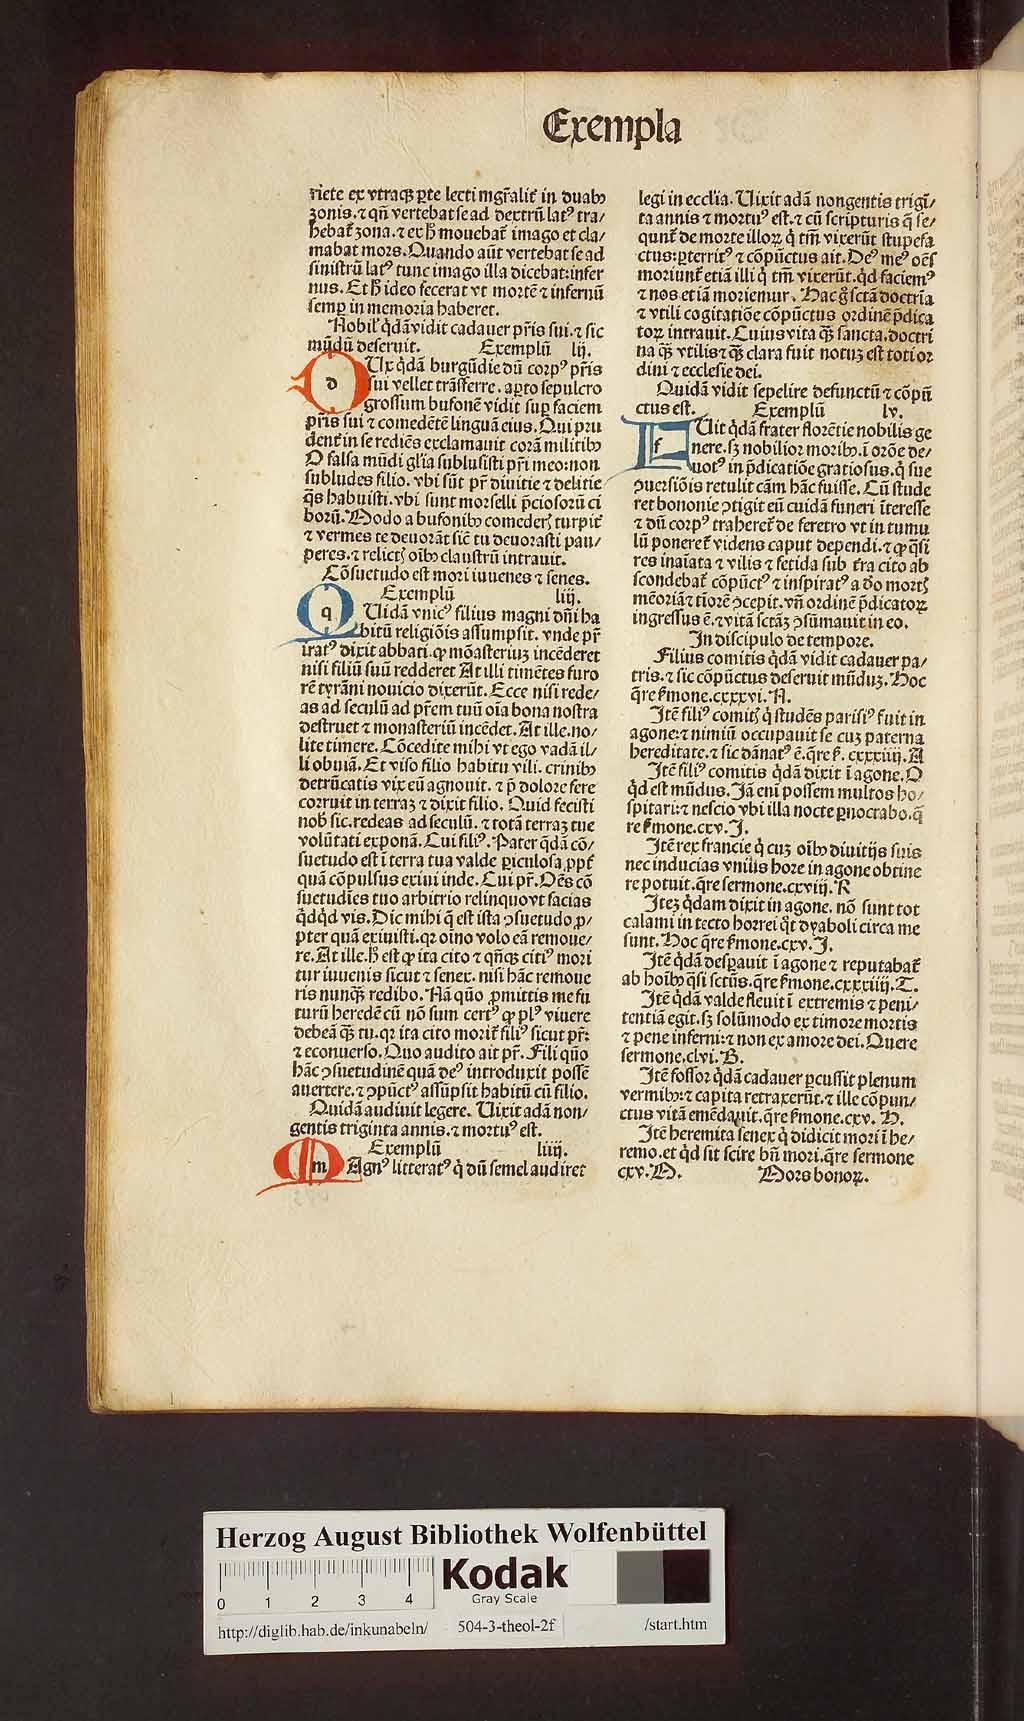 Exempla
riete ex vtraqꝫ ꝑte lecti mgr̄alit᷑ in duabꝰ
zonis. ⁊ qn̄ vertebat se ad dextrū latꝰ tra/
hebat᷑ zona. ⁊ ex h̄ mouebat᷑ imago et cla/
mabat mors. Quando aūt vertebat se ad
sinistrū latꝰ tunc imago illa dicebat: infer
nus. Et h̄ ideo fecerat vt mortē ⁊ infernū
semꝑ in memoria haberet.
Nobil̓ qͥdā vidit cadauer pr̄is sui. ⁊ sic
mūdū deseruit. Exemplū lij.
d Ux qͥdā burgūdie dū corpꝰ pr̄is
sui vellet trāsferre. aꝑto sepulcro
grossum bufonē vidit suꝑ faciem
pr̄is sui ⁊ comedētē linguā eius. Qui pru
dent᷑ in se rediēs exclamauit corā militibꝰ
O falsa mūdi gl̄ia sublusisti pr̄i meo: non
subludes filio. vbi sūt pr̄ diuitie ⁊ delitie
q̄s habuisti. vbi sunt morselli p̄ciosorū ci
borū. Modo a bufonibꝰ comederꝭ turpit᷑
⁊ vermes te deuorāt sic̄ tu deuorasti pau/
peres. ⁊ relictꝭ oībꝰ claustrū intrauit.
Cōsuetudo est mori iuuenes ⁊ senes.
Exemplū liij.
q Uidā vnicꝰ filius magni dn̄i ha
bitū religiōis assumpsit. vnde pr̄
iratꝰ dixit abbati. ꝙ mōasteriuꝫ incēderet
nisi filiū suū redderet At illi timētes furo
rē tyrāni nouicio dixerūt. Ecce nisi rede/
as ad seculū ad pr̄em tuū oīa bona nostra
destruet ⁊ monasteriū incēdet. At ille. no/
lite timere. Cōcedite mihi vt ego vadā il/
li obuiā. Et viso filio habitu vili. crinibꝰ
detrūcatis vix eū agnouit. ⁊ p̄ dolore fere
corruit in terraꝫ ⁊ dixit filio. Quid fecisti
nob̓ sic. redeas ad seculū. ⁊ totā terraꝫ tue
volūtati exponā. Cui filiꝰ. Pater qͥdā cō/
suetudo est ī terra tua valde ꝑiculosa ꝓpt᷑
quā cōpulsus exiui inde. Cui pr̄. Oēs cō
suetudīes tuo arbitrio relinquo vt facias
qͥdqͥd vis. Dic mihi q̄ est ista ↄsuetudo ꝓ/
pter quā exiuisti. qꝛ oīno volo eā remoue/
re. At ille. h̄ est ꝙ ita cito ⁊ qn̄qꝫ citiꝰ mori
tur iuuenis sicut ⁊ senex. nisi hāc remoue
ris nunqꝫ redibo. Nā quō ꝓmittis me fu
turū heredē cū nō sum certꝰ ꝙ plꝰ viuere
debeā qꝫ tu. qꝛ ita cito morit᷑ filiꝰ sicut pr̄:
⁊ econuerso. Quo audito ait pr̄. Fili quō
hāc ↄsuetudinē quā deꝰ introduxit possē
auertere. ⁊ ↄpūctꝰ assūpsit habitū cū filio.
Quidā audiuit legere. Vixit adā non/
gentis triginta annis. ⁊ mortuꝰ est.
Exemplū liiij.
m Agnꝰ litteratꝰ qͥ dū semel audiret
legi in eccl̄ia. Vixit adā nongentis trigī/
ta annis ⁊ mortuꝰ est. ⁊ cū scripturis q̄ se/
qunt᷑ de morte illoꝝ qͥ tm̄ vixerūt stupefa
ctus: ꝑterritꝰ ⁊ cōpūctus ait. Deꝰ meꝰ oēs
moriunt᷑ etiā illi qͥ tm̄ vixerūt. qͥd faciemꝰ
⁊ nos etiā moriemur. Hac gͦ sctā doctrīa
⁊ vtili cogitatiōe cōpūctus ordinē p̄dica
toꝝ intrauit. Cuius vita qꝫ sancta. doctri
na qꝫ vtilis ⁊ qꝫ clara fuit notuꝫ est toti or
dini ⁊ ecclesie dei.
Quidā vidit sepelire defunctū ⁊ cōpū
ctus est. Exemplū lv.
f Uit qͥdā frater florētie nobilis ge
nere. sꝫ nobilior moribꝰ. ī orōe de/
uotꝰ in p̄dicatiōe gratiosus. qͥ sue
ↄuersiōis retulit cām hāc fuisse. Cū stude
ret bononie ↄtigit eū cuidā funeri īteresse
⁊ dū corpꝰ traheret᷑ de feretro vt in tumu
lū poneret᷑ videns caput dependi. ⁊ ꝙ q̄si
res inaīata ⁊ vilis ⁊ fetida sub t̄ra cito ab
scondebat᷑ cōpūctꝰ ⁊ inspiratꝰ a dō mortꝭ
mēoriā ⁊ tīorē ↄcepit. vn̄ ordinē p̄dicatoꝝ
ingressus ē. ⁊ vitā sctāꝫ ↄsūmauit in eo.
In discipulo de tempore.
Filius comitis qͥdā vidit cadauer pa/
tris. ⁊ sic cōpūctus deseruit mūduꝫ. Hoc
q̄re ẜmone. cxxxvi. N.
Itē filiꝰ comitꝭ qͥ studēs parisiꝰ fuit in
agone. ⁊ nimiū occupauit se cuꝫ paterna
hereditate. ⁊ sic dānatꝰ ē. q̄re ẜ. cxxxiiij. A
Itē filiꝰ comitis qͥdā dixit ī agone. O
qͥd est mūdus. Iā eni possem multos ho/
spitari: ⁊ nescio vbi illa nocte ꝑnoctabo. q̄
re ẜmone. cxv. I.
Itē rex francie qͥ cuꝫ oībꝰ diuitijs suis
nec inducias vnius hore in agone obtine
re potuit. q̄re sermone. cxviij. R
Iteꝫ qͥdam dixit in agone. nō sunt tot
calami in tecto horrei qͦt dyaboli circa me
sunt. Hoc q̄re ẜmone. cxv. I.
Itē qͥdā desꝑauit ī agone ⁊ reputabat᷑
ab hoībꝰ q̄si sctūs. q̄re ẜmone. cxxxiiij. T.
Itē qͥdā valde fleuit ī extremis ⁊ peni/
tentiā egit. sꝫ solūmodo ex timore mortis
⁊ pene inferni: ⁊ non ex amore dei. Quere
sermone. clvi. B.
Itē fossor qͥdā cadauer ꝑcussit plenum
vermibꝰ: ⁊ capita retraxerūt. ⁊ ille cōpun/
ctus vitā emēdauit. q̄re ẜmone. cxv. H.
Itē heremita senex qͥ didicit mori ī he/
remo. et qͥd sit scire bn̄ mori. q̄re sermone
cxv. M. Mors bonoꝝ.
Herzog August Bibliothek Wolfenbüttel
0 1 2 3 4
Kodak
Gray Scale
http://diglib.hab.de/inkunabeln/ 504-3-theol-2f /start.htm